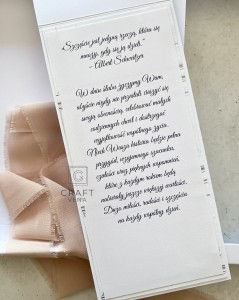 „Szczęście jest jedyną rzeczą, która się
mnoży, gdy się ją dzieli."
- Albert Schweitzer
W dniu ślubu życzymy Wam,
abyście nigdy nie przestali cieszyć się
swoją obecnością, celebrować małych
codziennych chwil i dostrzegać
wyjątkowość wspólnego życia.
Niech Wasza historia będzie pełna
przygód, wzajemnego szacunku,
czułości oraz pięknych wspomnień,
które z każdym rokiem będą
nabierały jeszcze większej wartości.
Dużo miłości, radości i szczęścia
na każdy wspólny dzień.
G
CRAFT
VENA